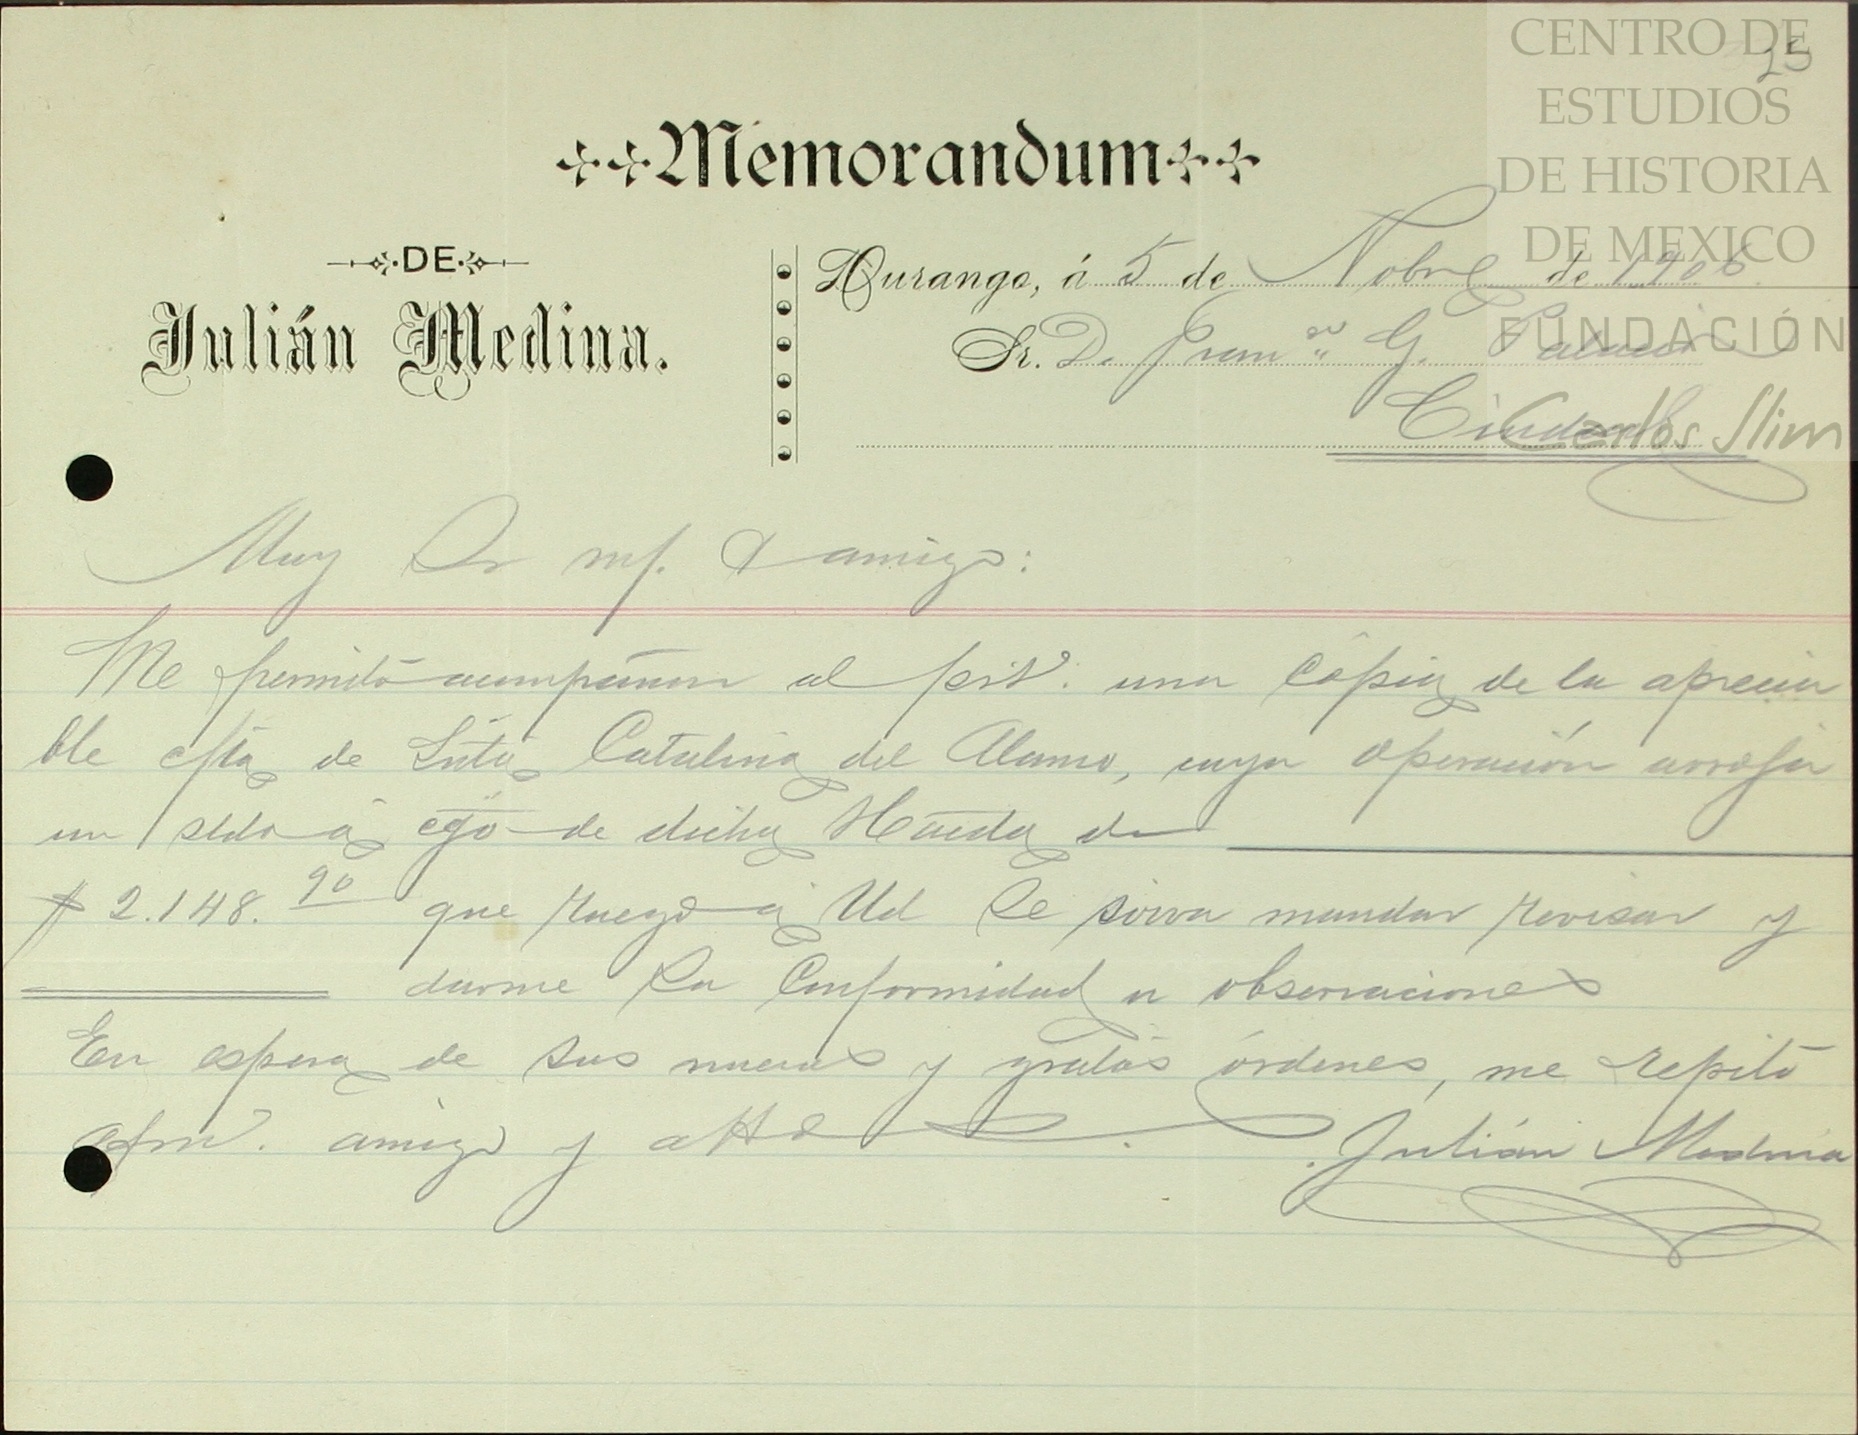 CENTRO DE
ESTUDIOS
DE HISTORIA
DE MEXICO
FUNDACIÓN
Carlos Slim
25
Memorandum
DE
Julián Medina.
Durango, á 5 de Nobre de 1906
Sr. D. G.
Ciudad
Muy Sr mf. y amigo:
Me permito acompañar al una cópia de la aprecia
ble cta de Snta Catalina del Alamo, cuya operación arroja
un sldo á cgo de dicha Hacda de
$ 2.148. 90 que ruego á Ud se sirva mandar revisar y
darme su conformidad u observaciones
En espera de sus nuevas y gratas órdenes, me repito
afmo. amigo y atto
Julián Medina